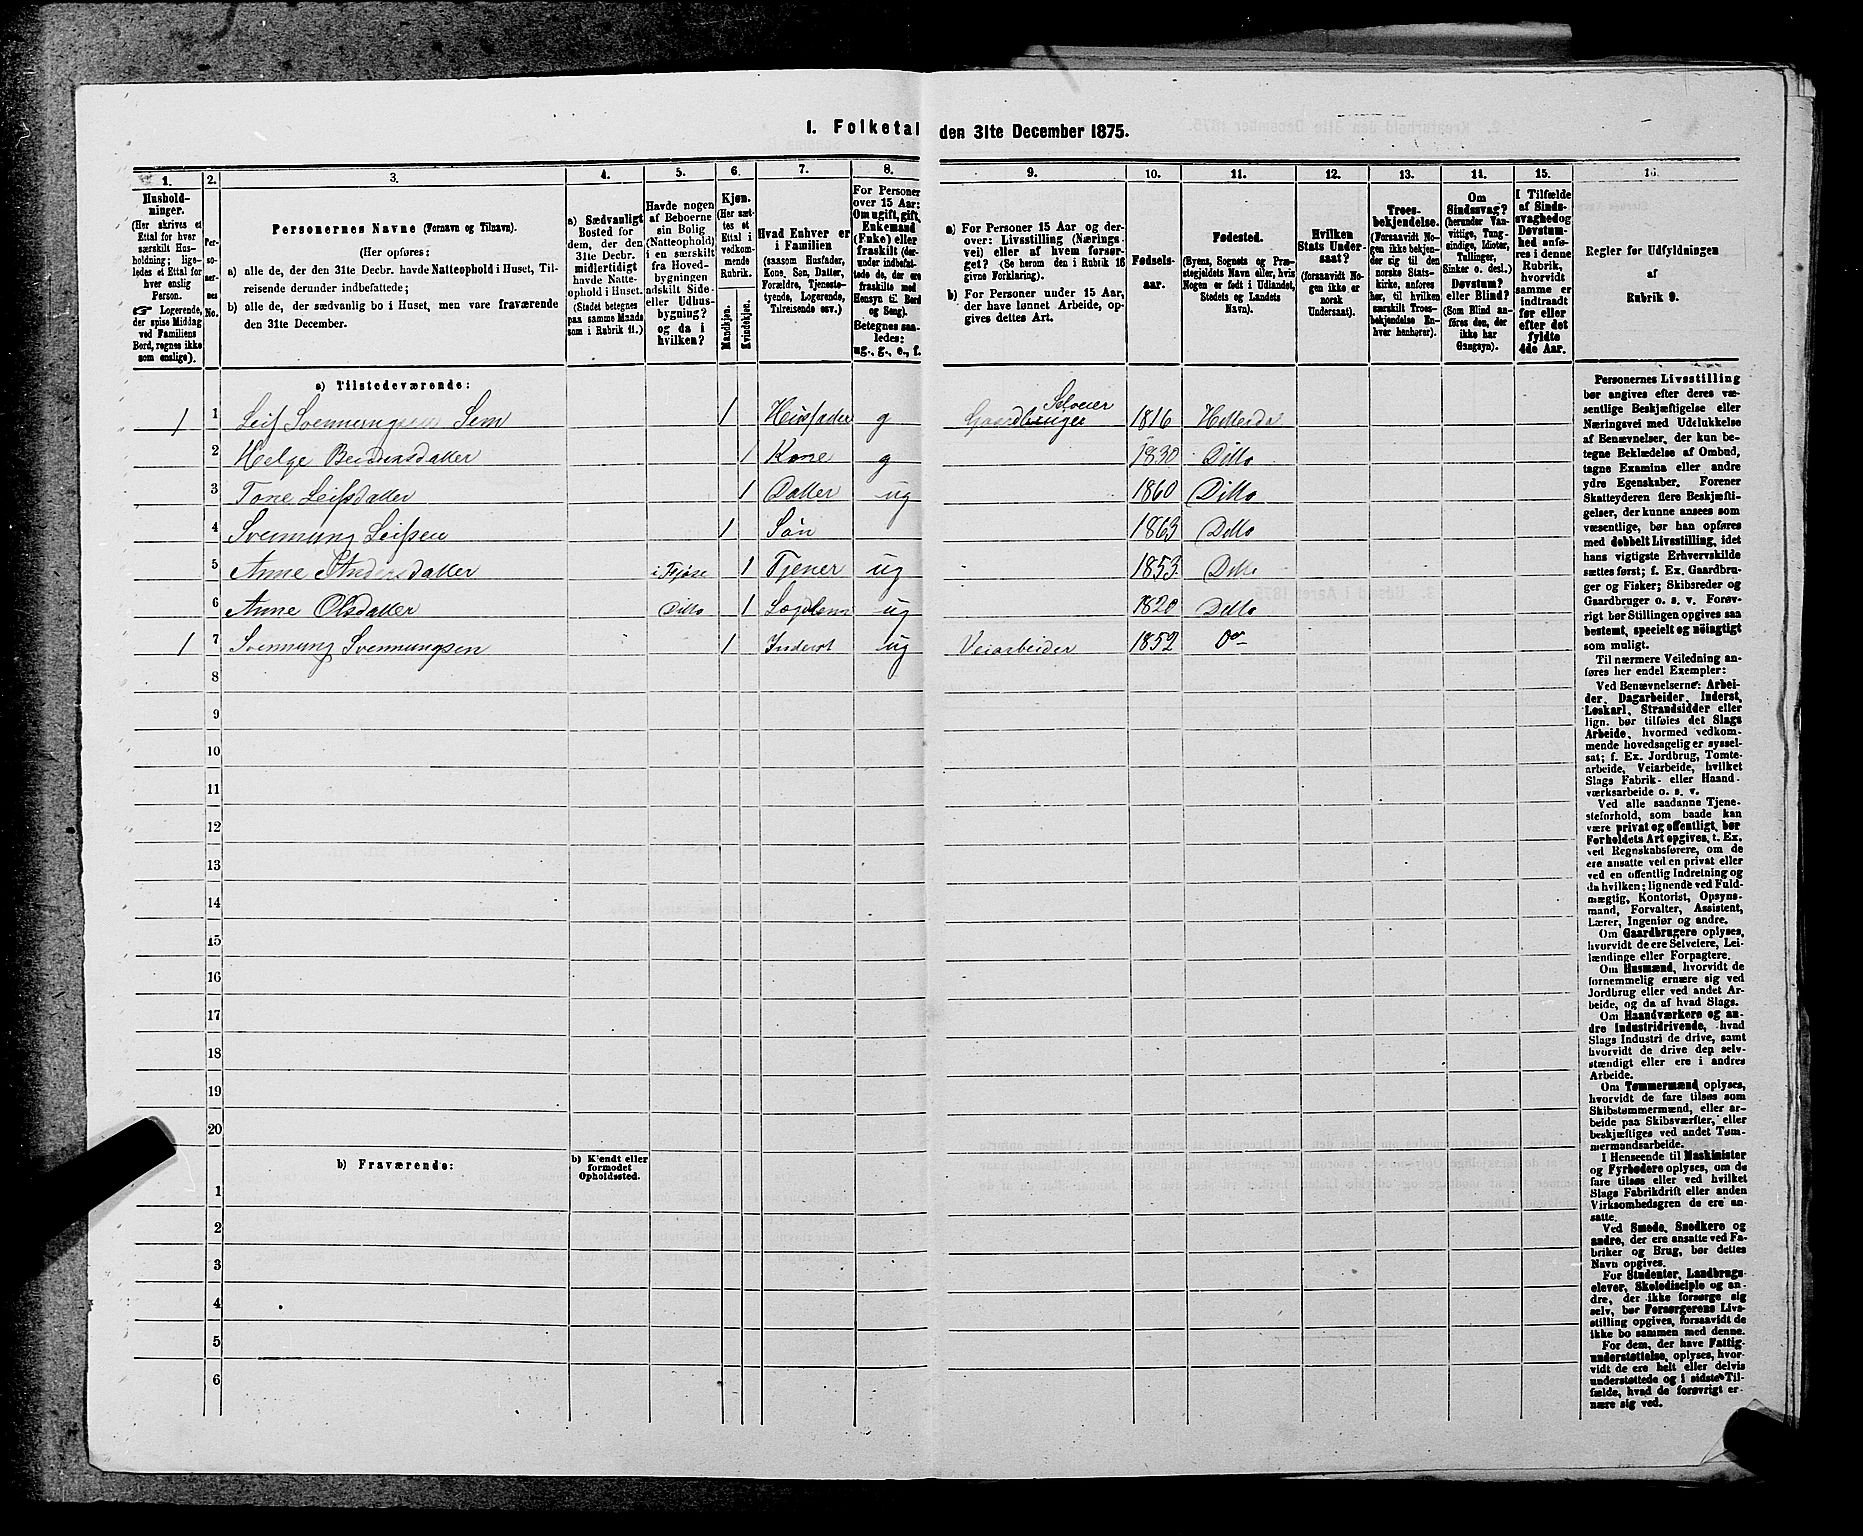 I. Folketal den 31te December 1875.
1. 2. 3. 4. 5. 6. 7. 8. 9. 10. 11. 12. 13. 14. 15. 16.
Hushold-
ninger.
(Her skrives et
Ettal for hver
særskilt Hus-
holdning; lige-
ledes et Ettal for
hver enslig
Person.
☞ Logerende,
der spise Middag
ved Familiens
Bord, regnes ikke
som enslige).
Per-
so-
ner-
nes
No.
Personernes Navne (Fornavn og Tilnavn).
(Her opføres:
a) alle de, der den 31te Decbr. havde Natteophold i Huset, Til-
reisende derunder indbefattede;
b) alle de, der sædvanlig bo i Huset, men vare fraværende
den 31te December.
a) Sædvanligt
Bosted for
dem, der den
31te Decbr.
midlertidigt
havde Natte-
ophold i Huset.
(Stedet betegnes
paa samme Maade
som i Rubrik 11.)
Havde nogen
af Beboerne
sin Bolig
(Natteophold)
i en særskilt
fra Hoved-
bygningen
adskilt Side-
eller Udhus-
bygning?
og da i
hvilken?
Kjøn.
(Her sæt-
tes et
Ettal i
vedkom-
mende
Rubrik.
Mandkjøn.
Kvindekjøn.
Hvad Enhver er
i Familien
(saasom Husfader,
Kone, Søn, Datter,
Forældre, Tjeneste-
tyende, Logerende,
Tilreisende osv.)
For Personer
over 15 Aar:
Om ugift, gift,
Enkemand
(Enke) eller
fraskilt (der-
under indbefat-
tede de, der ere
fraskilte med
Hensyn til Bord
og Seng).
Betegnes saa-
ledes:
ug., g., e., f.
a) For Personer 15 Aar og der-
over: Livsstilling (Nærings-
vei) eller af hvem forsør-
get? (Se herom den i Rubrik 16
givne Forklaring).
b) For Personer under 15 Aar,
der have lønnet Arbeide, op-
gives dettes Art.
Fødsels-
aar.
Fødested.
(Byens, Sognets og Præ-
stegjeldets Navn eller, hvis
Nogen er født i Udlandet,
Stedets og Landets
Navn).
Hvilken
Stats Under-
saat?
(forsaavidt No-
gen ikke er
norsk
Undersaat).
Troes-
bekjendelse.
(Forsaavidt No-
gen ikke bekjen-
der sig til den
norske Stats-
kirke, anføres
her, til hvilken
særskilt Troes-
bekjendelse En-
hver henhører).
Om
Sindssvag?
(herunder Van-
vittige, Tung-
sindige, Idioter,
Tullinger,
Sinker o. desl.)
Døvstum?
eller Blind?
(Som Blind an-
føres den, der
ikke har
Gangsyn).
I Tilfælde
af Sinds-
svaghed og
Døvstum-
hed anfø-
res i denne
Rubrik,
hvorvidt
samme er
indtraadt
før eller
efter det
fyldte
4de Aar.
Regler før Udfyldningen
af
Rubrik 9.
a) Tilstedeværende:
1 1 Leif Svennungsen Sem 1 Husfader g Gaardbruger Selveier 1816 Hitterdal
2 Helge 1 Kone g 1830 Ditto
3 Tone Leifsdatter 1 Datter ug 1860 Ditto
4 Svennung Leifsen 1 Søn 1863 Ditto
5 Anne Andersdatter i Fjøse 1 Tjener ug 1853 Ditto
6 Anne Olsdatter Ditto 1 Lægdlem ug 1820 Ditto
1 7 Svennung Svennungsen 1 Inderst ug Veiarbeider 1852 Do
8
9
10
11
12
13
14
15
16
17
18
19
20
b) Fraværende:
b) Kjendt eller
formodet
Opholdssted.
1
2
3
4
5
6
Personernes Livsstilling
bør angives efter deres væ-
sentlige Beskjæftigelse eller
Næringsvei med Udelukkelse
af Benævnelser, der kun be-
tegne Beklædelse af Ombud,
tagne Examina eller andre
ydre Egenskaber. Forener
Skatteyderen flere Beskjæfti-
gelser, der kunne ansees som
væsentlige, bør han opføres
med dobbelt Livsstilling, idet
hans vigtigste Erhvervskilde
sættes først; f. Ex. Gaardbru-
ger og Fisker; Skibsreder og
Gaardbruger o. s. v. Forøv-
rigt bør Stillingen opgives saa
bestemt, specielt og nöiagtigt
som muligt.
Til nærmere Veiledning an-
føres her endel Exempler:
Ved Benævnelserne: Arbei-
der, Dagarbeider, Inderst,
Løskarl, Strandsidder eller
lign. bør tilføies det Slags
Arbeide, hvormed vedkom-
mende hovedsagelig er syssel-
sat; f. Ex. Jordbrug, Tomte-
arbeide, Veiarbeide, hvilket
Slags Fabrik- eller Haand-
værksarbeide o. s. v.
Ved alle saadanne Tjene-
steforhold, som baade kan
være privat og offentligt, bør
Forholdets Art opgives, t. Ex.
ved Regnskabsførere, om de
ere ansatte ved en privat eller
ved en offentlig Indretning og
da hvilken; lignende ved Fuld-
mægtig, Kontorist, Opsyns-
mand, Forvalter, Assistent,
Lærer, Ingeniør og andre.
Om Gaardbrugere oplyses,
hvorvidt de ere Selveiere, Lei-
lændinge eller Forpagtere.
Om Husmænd, hvorvidt de
fornemmelig ernære sig ved
Jordbrug eller ved andet Ar-
beide, og da af hvad Slags.
Om Haandværkere og an-
dre Industridrivende, hvad
Slags Industri de drive, samt
hvorvidt de drive den selv-
stændigt eller ere i andres
Arbeide.
Om Tømmermænd oplyses,
hvorvidt de fare tilsøs som
Skibstømmermænd, eller ar-
beide paa Skibsværfter, eller
beskjæftiges ved andet Tøm-
mermandsarbeide.
I Henseende til Maskinister
og Fyrbødere oplyses, om de
fare tilsøs eller ved hvilket
Slags Fabrikdrift eller anden
Virksomhedsgren de ere an-
satte.
Ved Smede, Snedkere og
andre, der ere ansatte ved Fa-
briker og Brug, bør dettes
Navn opgives.
For Studenter, Landbrugs-
elever, Skoledisciple og an-
dre, der ikke forsørge sig
selv, bør Forsørgerens Livs-
stilling opgives, forsaavidt de
ikke bo sammen med denne.
For dem, der have Fattig-
understøttelse, oplyses, hvor-
vidt de ere helt eller delvis
understøttede og i sidste Til-
fælde, hvad de forøvrigt er-
nære sig ved.